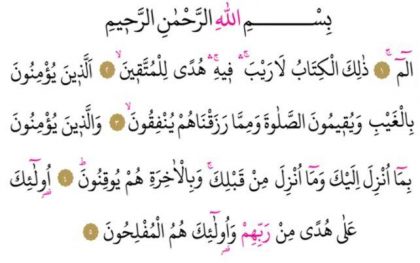 بِسْمِ اللّٰهِ الرَّحْمٰنِ الرَّح۪يمِ
الٓمٓ ۚ ﴿١﴾ ذٰلِكَ الْكِتَابُ لَا رَيْبَ ۚۛ ف۪يهِ ۚۛ هُدًى لِلْمُتَّق۪ينَ ۙ ﴿٢﴾ اَلَّذ۪ينَ يُؤْمِنُونَ
بِالْغَيْبِ وَيُق۪يمُونَ الصَّلٰوةَ وَمِمَّا رَزَقْنَاهُمْ يُنْفِقُونَ ۙ ﴿٣﴾ وَالَّذ۪ينَ يُؤْمِنُونَ
بِمَٓا اُنْزِلَ اِلَيْكَ وَمَٓا اُنْزِلَ مِنْ قَبْلِكَ ۚ وَبِالْاٰخِرَةِ هُمْ يُوقِنُونَ ۜ ﴿٤﴾ اُو۬لٰٓئِكَ
عَلٰى هُدًى مِنْ رَبِّهِمْ وَاُو۬لٰٓئِكَ هُمُ الْمُفْلِحُونَ ﴿٥﴾